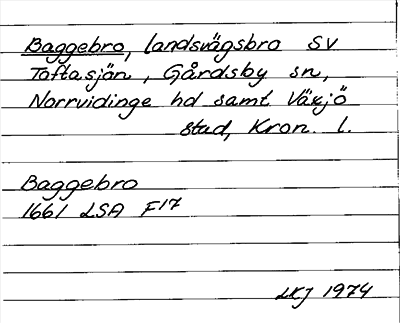 Baggebro, landsvägsbro SV
Toftasjön, Gårdsby sn,
Norrvidinge hd samt Växjö
stad, Kron. l.
Baggebro
1661 LSA F17
LKJ 1974